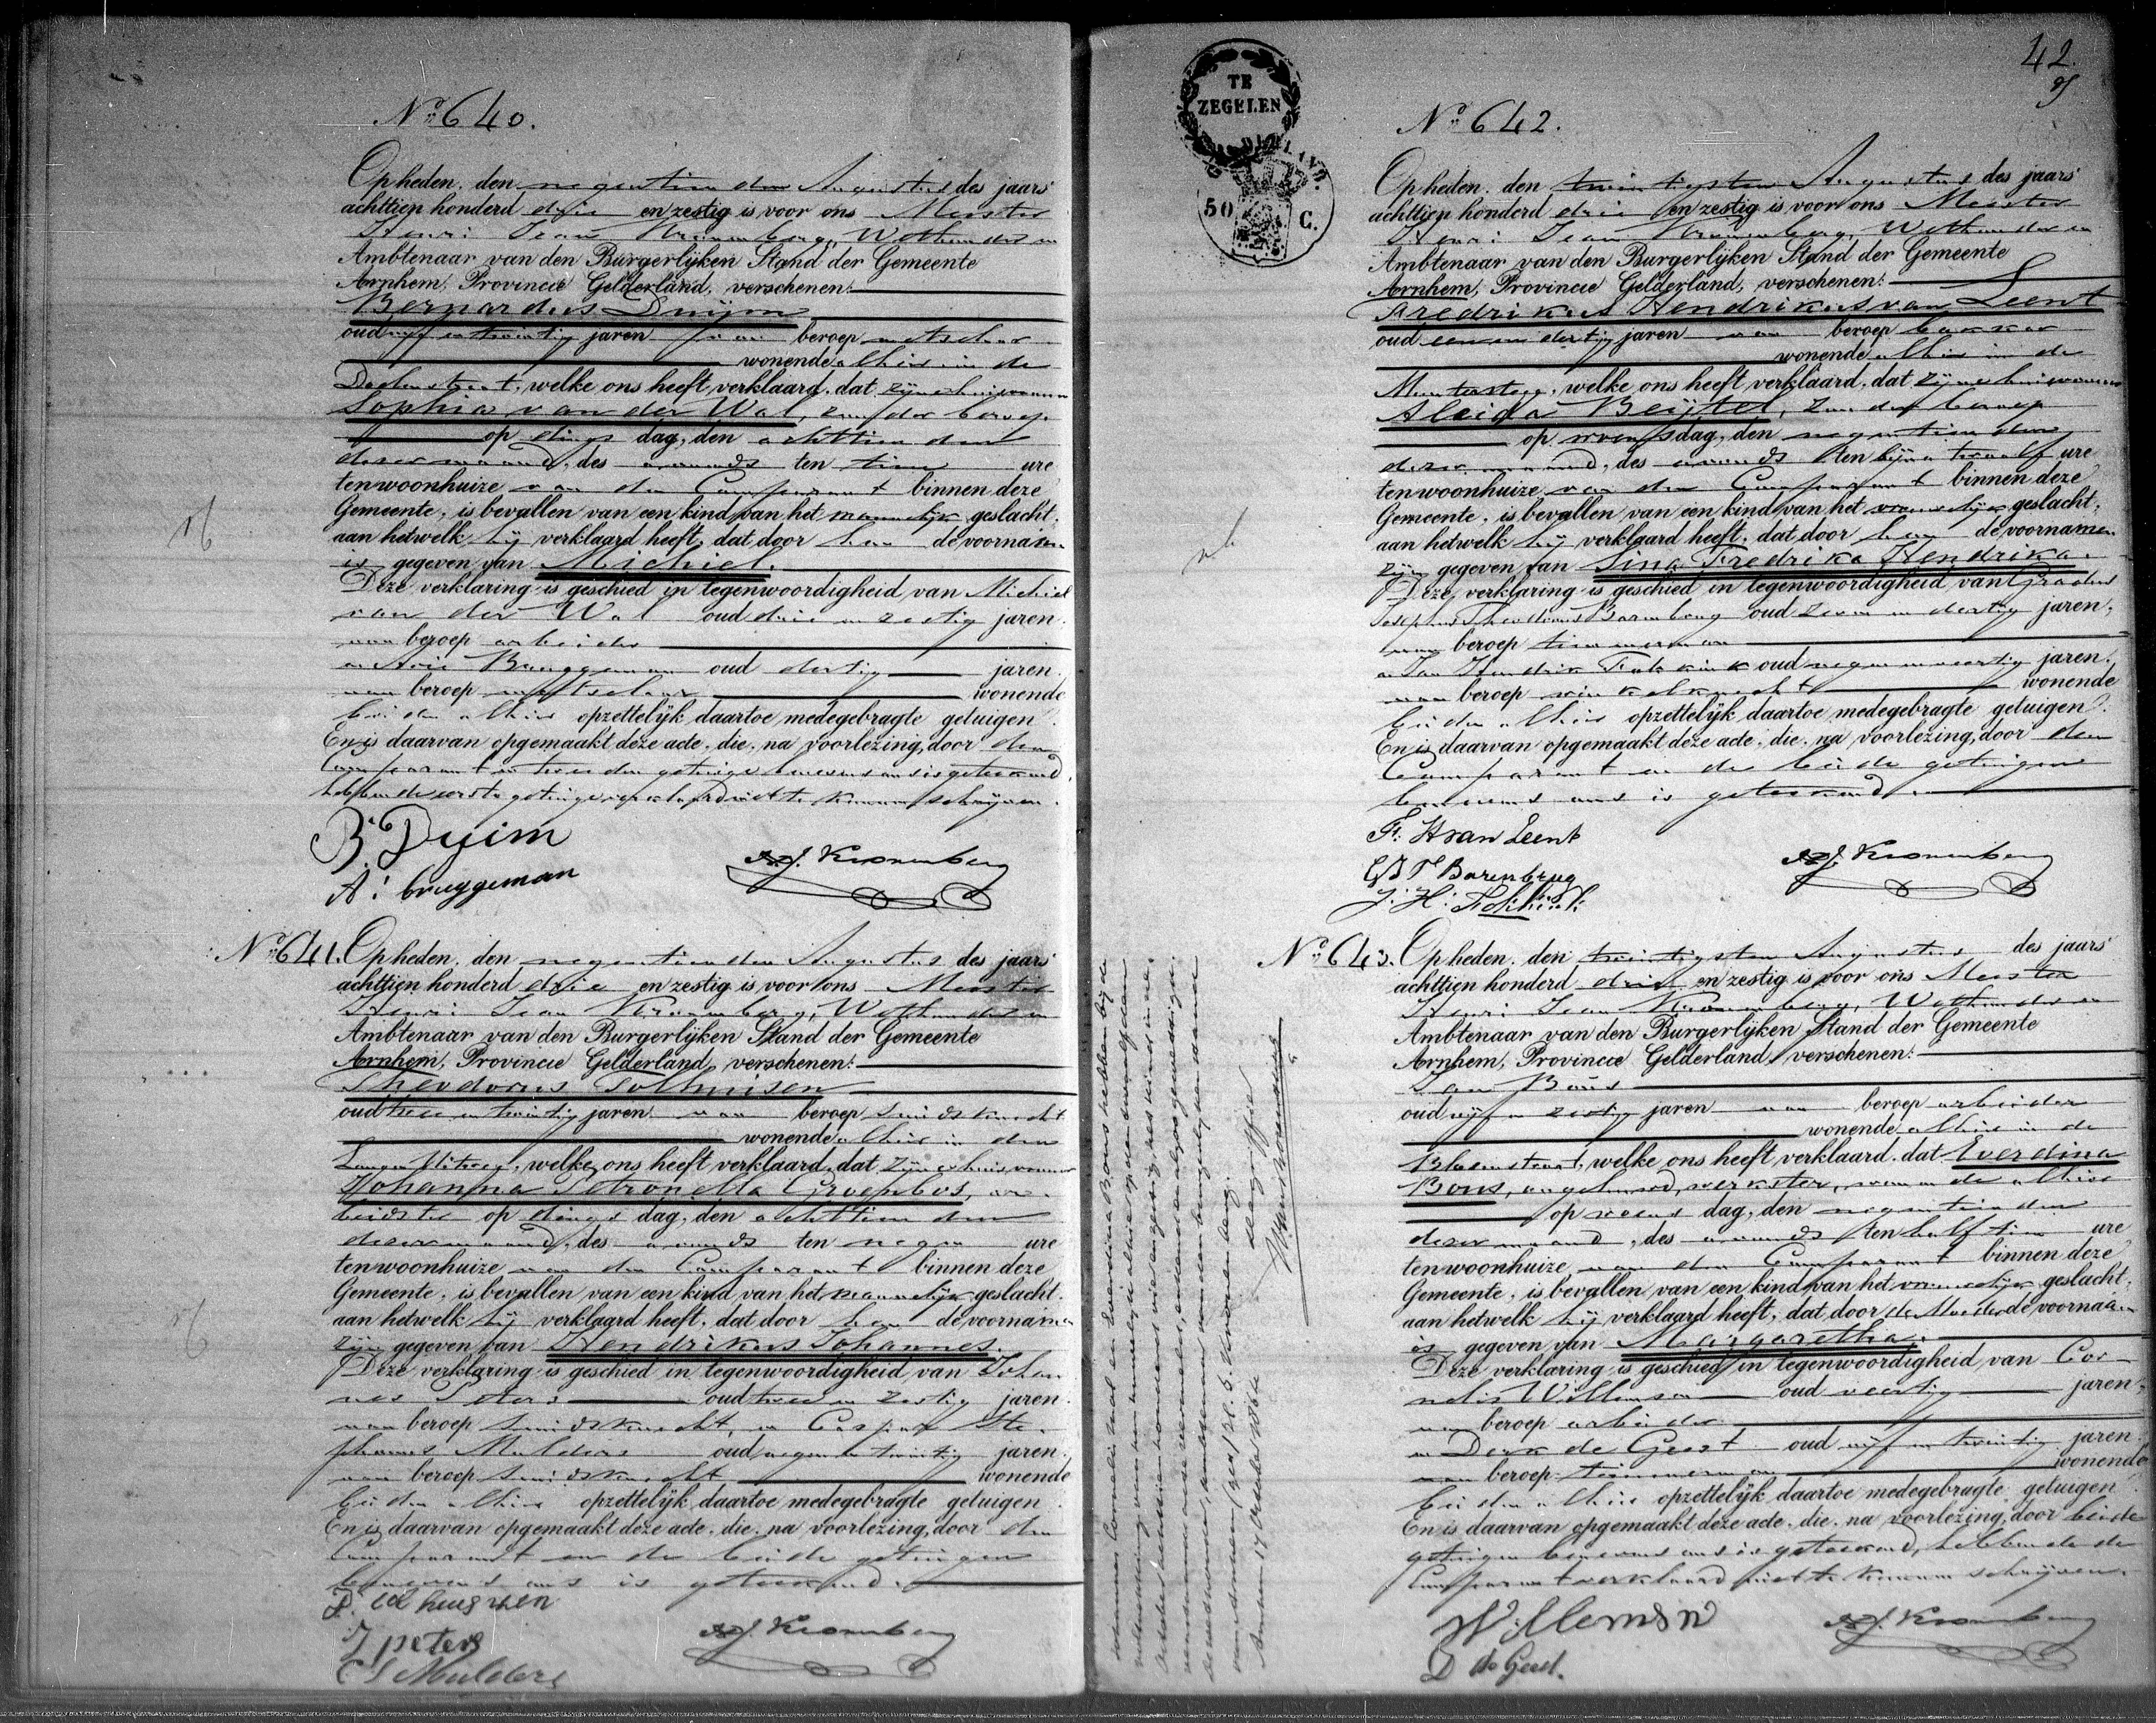 No 640.
Op heden, den negentienden Augustus des jaars
achttien honderd drie en zestig is voor ons Meester
Henri Jean Kronenberg, Wethouder en
Ambtenaar van den Burgerlijken Stand der Gemeente
Arnhem, Provincie Gelderland, verschenen:
Bernardus Duijm
oud vijf en twintig jaren van beroep metselaar
wonende alhier in de
straat, welke ons heeft verklaard, dat zijne huisvrouw
Sophia van der Wal, zonder beroep
op dings dag, den achttienden
dezer maand, des avonds ten tien ure
ten woonhuize van den Comparant binnen deze
Gemeente, is bevallen van een kind van het mannelijk geslacht,
aan hetwelk hij verklaard heeft, dat door hem de voornaam
is gegeven van Michiel.
Deze verklaring is geschied in tegenwoordigheid van Michiel
van der Wal oud drie en zestig jaren,
van beroep arbeider
en Arie Bruggeman oud dertig jaren,
van beroep metselaar wonende
beiden alhier opzettelijk daartoe medegebragte getuigen.
En is daarvan opgemaakt deze acte, die, na voorlezing, door den
Comparant en tweeden getuige benevens ons is geteekend,
hebbende eerste getuige verklaard niet te kunnen schrijven.
B. Duim
A: bruggeman
H.J. Kronenberg
No 641. Op heden, den negentienden Augustus des jaars
achttien honderd drie en zestig is voor ons Meester
Henri Jean Kronenberg, Wethouder en
Ambtenaar van den Burgerlijken Stand der Gemeente
Arnhem, Provincie Gelderland, verschenen:
Theodorus
oud twee en twintig jaren van beroep smidsknecht
wonende alhier in den
welke ons heeft verklaard, dat zijne huisvrouw
Johanna Petronella Groenbos, ar-
beidster op dings dag, den achttienden
dezer maand, des avonds ten negen ure
ten woonhuize van den Comparant binnen deze
Gemeente, is bevallen van een kind van het mannelijk geslacht,
aan hetwelk hij verklaard heeft, dat door hem de voornamen
zijn gegeven van Hendrikus Johannes.
Deze verklaring is geschied in tegenwoordigheid van Johan
nes Peters oud twee en zestig jaren,
van beroep smidsknecht, en Caspar Ste-
phanus Mulders oud negen en twintig jaren,
van beroep smidsknecht wonende
beiden alhier opzettelijk daartoe medegebragte getuigen.
En is daarvan opgemaakt deze acte, die, na voorlezing, door den
Comparant en de beide getuigen
benevens ons is geteekend.
J peters
C S Mulders
H.J. Kronenberg
42.
TE
ZEGELEN
GELDERLAND.
50 C.
No 642.
Op heden, den twintigsten Augustus des jaars
achttien honderd drie en zestig is voor ons Meester
Henri Jean Kronenberg, Wethouder en
Ambtenaar van den Burgerlijken Stand der Gemeente
Arnhem, Provincie Gelderland, verschenen:
Fredrikus Hendrikus van Leent
oud een en dertig jaren van beroep bakker
wonende alhier in de
welke ons heeft verklaard, dat zijne huisvrouw
Aleida Beijtel, zonder beroep
op woensdag, den negentienden
dezer maand, des avonds ten bijna twaalf ure
ten woonhuize van den Comparant binnen deze
Gemeente, is bevallen van een kind van het vrouwelijk geslacht,
aan hetwelk hij verklaard heeft, dat door hem de voornamen
zijn gegeven van Sina Fredrika Hendrika.
Deze verklaring is geschied in tegenwoordigheid van Gradus
Josephus Theodorus Barenbrug oud zeven en dertig jaren,
van beroep timmerman
en Jan Hendrik oud negen en veertig jaren,
van beroep winkelknecht wonende
beiden alhier opzettelijk daartoe medegebragte getuigen.
En is daarvan opgemaakt deze acte, die, na voorlezing, door den
Comparant en de beide getuigen
benevens ons is geteekend.
F. H van Leent
G J T Barenbrug
J. H.
H.J. Kronenberg
No 643. Op heden, den twintigsten Augustus des jaars
achttien honderd drie en zestig is voor ons Meester
Henri Jean Kronenberg, Wethouder en
Ambtenaar van den Burgerlijken Stand der Gemeente
Arnhem, Provincie Gelderland, verschenen:
Jan Bous
oud vijf en zestig jaren van beroep arbeider
wonende alhier in de
straat, welke ons heeft verklaard, dat Everdina
Bous, ongehuwd, werkster, wonende alhier
op woens dag, den negentienden
dezer maand, des avonds ten half tien ure
ten woonhuize van den Comparant binnen deze
Gemeente, is bevallen van een kind van het vrouwelijk geslacht,
aan hetwelk hij verklaard heeft, dat door de Moeder de voornaam
is gegeven van Margaretha.
Deze verklaring is geschied in tegenwoordigheid van Cor-
nelis Willemsen oud veertig jaren,
van beroep arbeider
en Derk de Geest oud vijf en twintig jaren,
van beroep timmerman wonende
beiden alhier opzettelijk daartoe medegebragte getuigen.
En is daarvan opgemaakt deze acte, die, na voorlezing, door beide
getuigen benevens ons is geteekend, hebbende de
Comparant verklaard niet te kunnen schrijven.
Willemsn
D de Geest.
H.J. Kronenberg